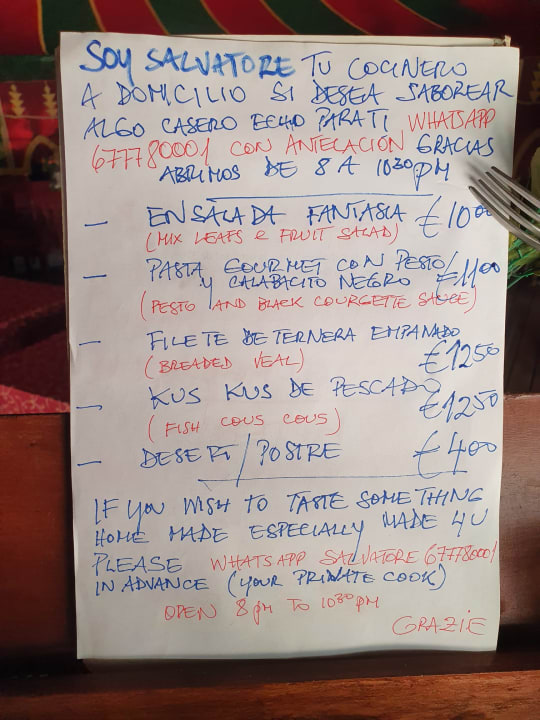 SOY SALVATORE TU COCINERO
A DOMICILIO SI DESEA SABOREAR
ALGO CASERO ECHO PARATI WHATSAPP
677780001 CON ANTELACIÓN GRACIAS
ABRIMOS DE 8 A 1030 PM
— ENSALADA FANTASIA €1000
(MIX LEAFS & FRUIT SALAD)
— PASTA GOURMET CON PESTO/
Y CALABACITO NEGRO €1100
(PESTO AND BLACK COURGETTE SAUCE)
— FILETE DE TERNERA EMPANADO
(BREADED VEAL) €1250
— KUS KUS DE PESCADO €1250
(FISH COUS COUS)
— DESERT/POSTRE €400
IF YOU WISH TO TASTE SOMETHING
HOME MADE ESPECIALLY MADE 4 U
PLEASE WHATSAPP SALVATORE 677780001
IN ADVANCE (YOUR PRIVATE COOK)
OPEN 8 pm TO 1030 PM
GRAZIE